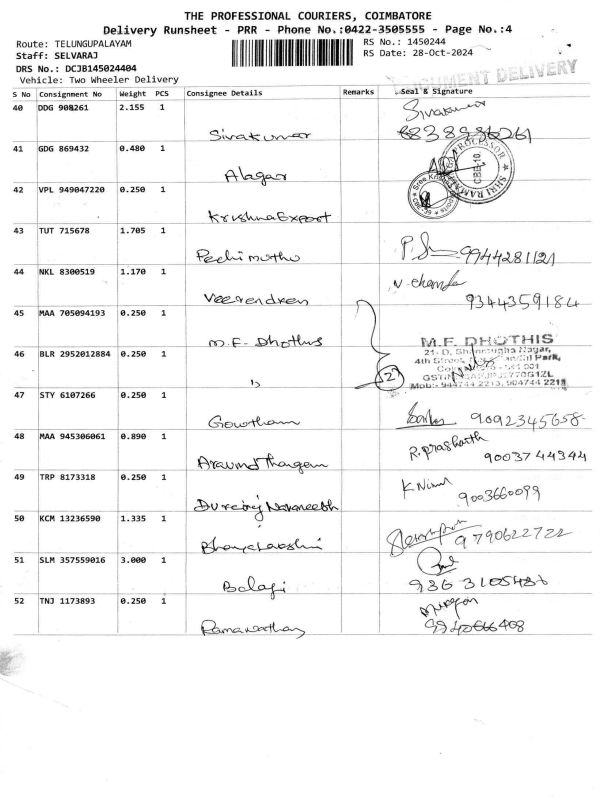 THE PROFESSIONAL COURIERS, COIMBATORE
Delivery Runsheet - PRR - Phone No.:0422-3505555 - Page No.:4
Route: TELUNGUPALAYAM
RS No.: 1450244
Staff: SELVARAJ
RS Date: 28-Oct-2024
DRS No.: DCJB145024404
Vehicle: Two Wheeler Delivery
DOCUMENT DELIVERY
S No Consignment No Weight PCS Consignee Details Remarks Seal & Signature
40 DDG 908261 2.155 1 Sivakumar
Sivakumar
41 GDG 869432 0.480 1
Alagar
42 VPL 949047220 0.250 1
Krishna Export
43 TUT 715678 1.705 1
Pechi muthu 9944281121
44 NKL 8300519 1.170 1
Veerendren 9344359184
45 MAA 705094193 0.250 1
M.F. Dhothis M.F. DHOTHIS
46 BLR 2952012884 0.250 1
21-D, Shanmugha Nagar,
4th Street,
2
Mob:- 944744 2213, 904744 2213
47 STY 6107266 0.250 1
Gowtham 9092345658
48 MAA 945306061 0.890 1 R. prashanth
9003744344
49 TRP 8173318 0.250 1 K Nirmal
9003660099
50 KCM 13236590 1.335 1
9790622722
51 SLM 357559016 3.000 1
Balaji
52 TNJ 1173893 0.250 1 Murugan